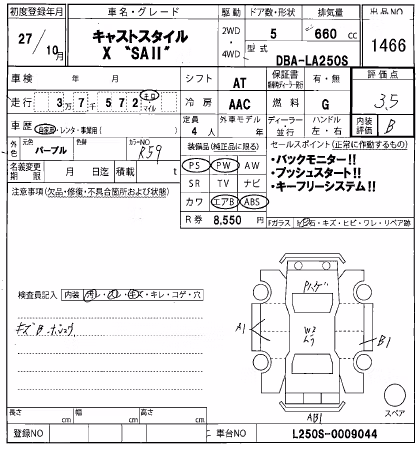 初度登録年月 車名・グレード 駆動 ドア数・形状 排気量 出品NO
27/10月 キャストスタイル X "SAII" 2WD・4WD 5 660 cc 1466
型式 DBA-LA250S
車検 年 月 シフト AT 保証書 有・無 評価点
走行 3万7千572 キロ マイル 冷房 AAC 燃料 G 3.5
車歴 自家用・レンタ・事業用( ) 定員 4人 車歴 年 ディーラー・並行 ハンドル 左・右 内装 B
外色 元色 パープル 色替 カラーNO R59
装備品(純正品に限る) セールスポイント(正常に作動するもの)
名義変更期限 月 日迄 積載 t
PS PW AW
・バックモニター!!
注意事項(欠品・修復・不具合箇所および状態)
SR TV ナビ
・プッシュスタート!!
カワ エアB ABS
・キーフリーシステム!!
R券 8,550円
Fガラス 石・キズ・ヒビ・ワレ・リペア跡
検査員記入 内装 ヨレ・スレ・キズ・キレ・コゲ・穴
キズ B
A1
W2
B1
AB1
スペア
長さ cm 幅 cm 高さ cm
登録NO 車台NO L250S-0009044